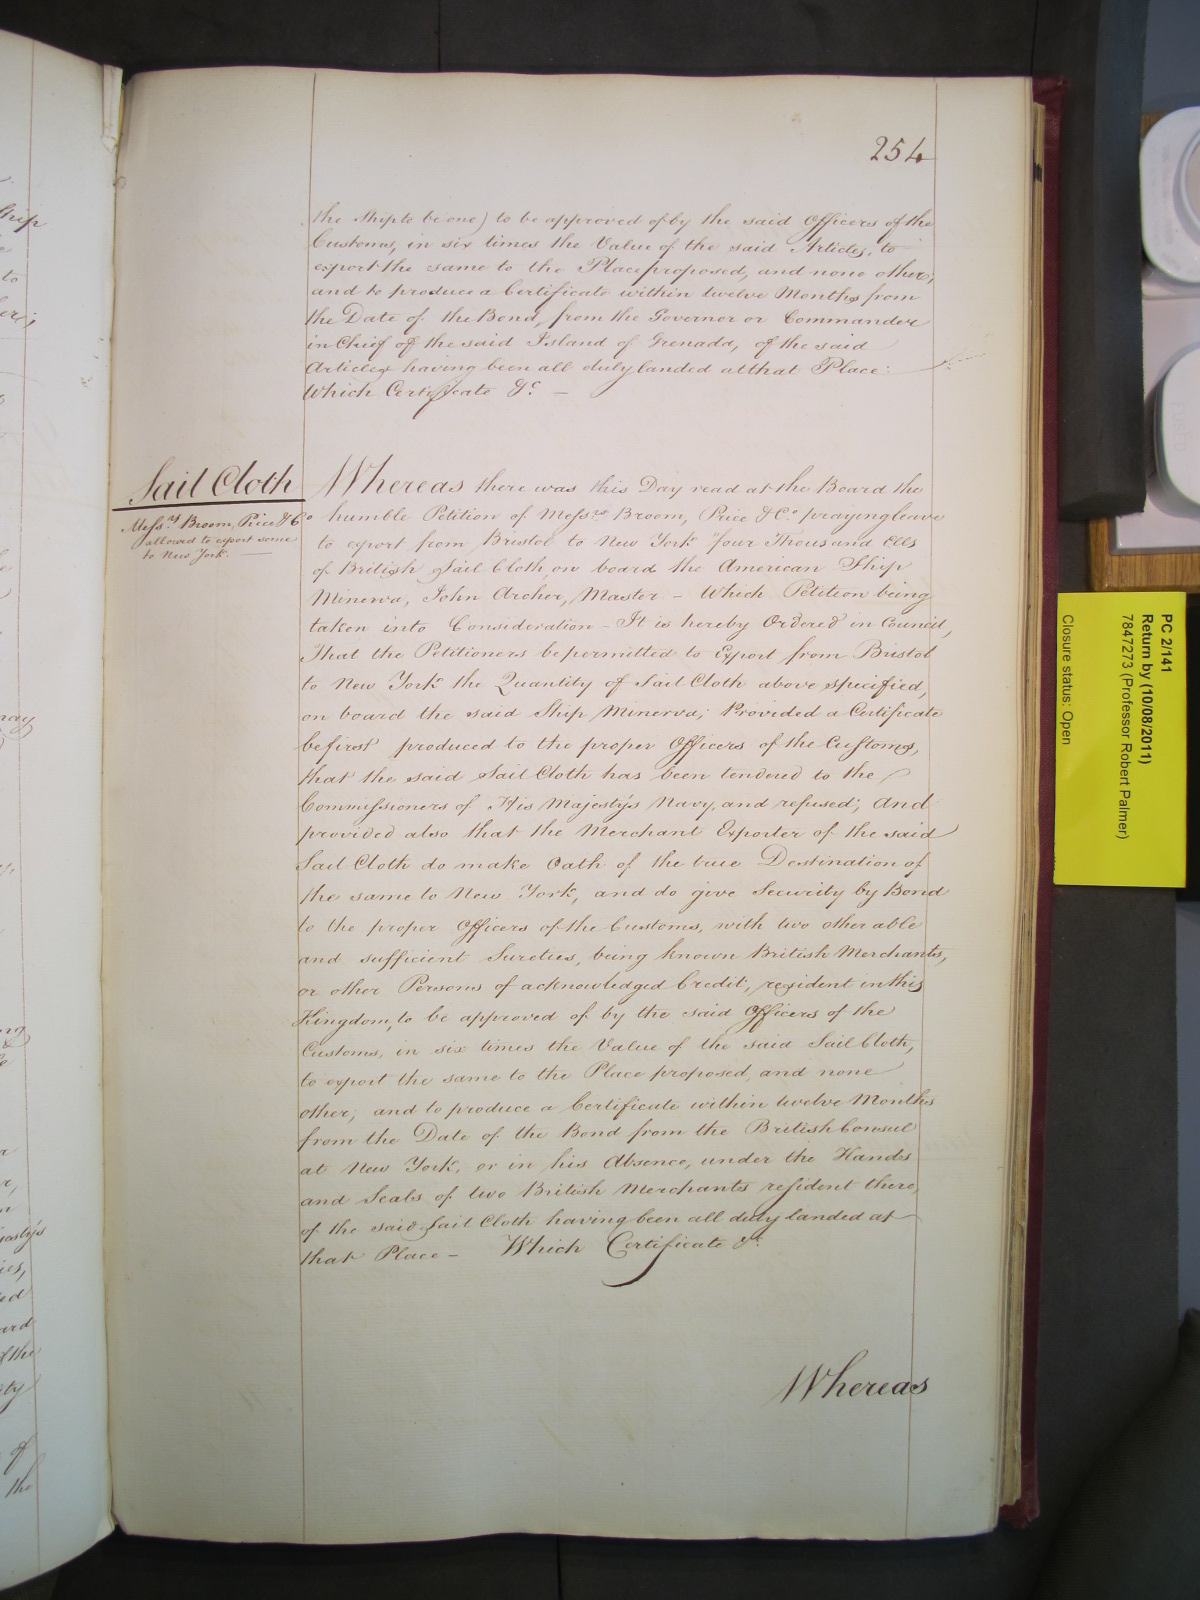 254
the Ship to be one) to be approved of by the said Officers of the
Customs, in six times the Value of the said Articles, to
export the same to the Place proposed, and none other;
and to produce a Certificate within twelve Months from
the Date of the Bond, from the Governor or Commander
in Chief of the said Island of Grenada, of the said
Articles having been all duly landed at that Place:
Which Certificate &c. —
Sail Cloth
Messrs. Broom, Price & Co
allowed to export some
to New York. —
Whereas there was this Day read at the Board the
humble Petition of Messrs. Broom, Price & Co. praying leave
to export from Bristol to New York four Thousand Ells
of British Sail Cloth on board the American Ship
Minerva, John Archer, Master – Which Petition being
taken into Consideration – It is hereby Ordered in Council,
That the Petitioners be permitted to Export from Bristol
to New York the Quantity of Sail Cloth above specified,
on board the said Ship Minerva; Provided a Certificate
be first produced to the proper Officers of the Customs,
that the said Sail Cloth has been tendered to the
Commissioners of His Majesty's Navy, and refused; And
provided also that the Merchant Exporter of the said
Sail Cloth do make Oath of the true Destination of
the same to New York, and do give Security by Bond
to the proper Officers of the Customs, with two other able
and sufficient Sureties, being known British Merchants,
or other Persons of acknowledged Credit, resident in this
Kingdom, to be approved of by the said Officers of the
Customs, in six times the Value of the said Sail Cloth,
to export the same to the Place proposed, and none
other; and to produce a Certificate within twelve Months
from the Date of the Bond from the British Consul
at New York, or in his Absence, under the Hands
and Seals of two British Merchants resident there,
of the said Sail Cloth having been all duly landed at
that Place – Which Certificate &c.
Whereas
PC 2/141
Return by (10/08/2011)
7847273 (Professor Robert Palmer)
Closure status: Open